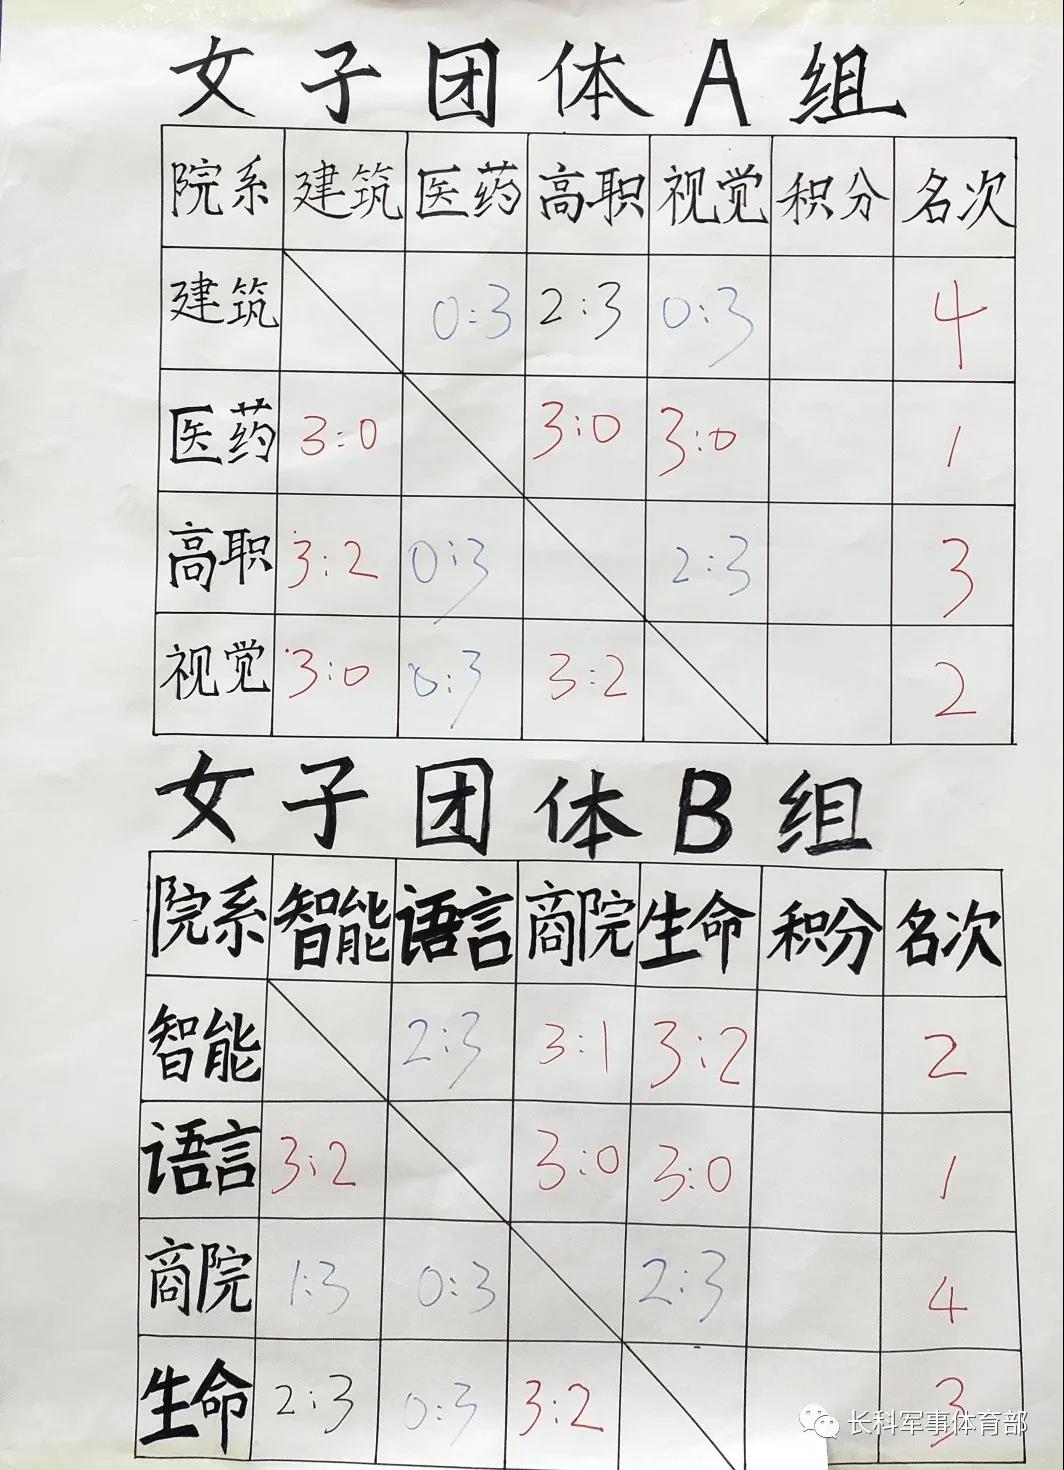 女子团体A组
院系 建筑 医药 高职 视觉 积分 名次
建筑 0:3 2:3 0:3 4
医药 3:0 3:0 3:0 1
高职 3:2 0:3 2:3 3
视觉 3:0 0:3 3:2 2
女子团体B组
院系 智能 语言 商院 生命 积分 名次
智能 2:3 3:1 3:2 2
语言 3:2 3:0 3:0 1
商院 1:3 0:3 2:3 4
生命 2:3 0:3 3:2 3
长科军事体育部